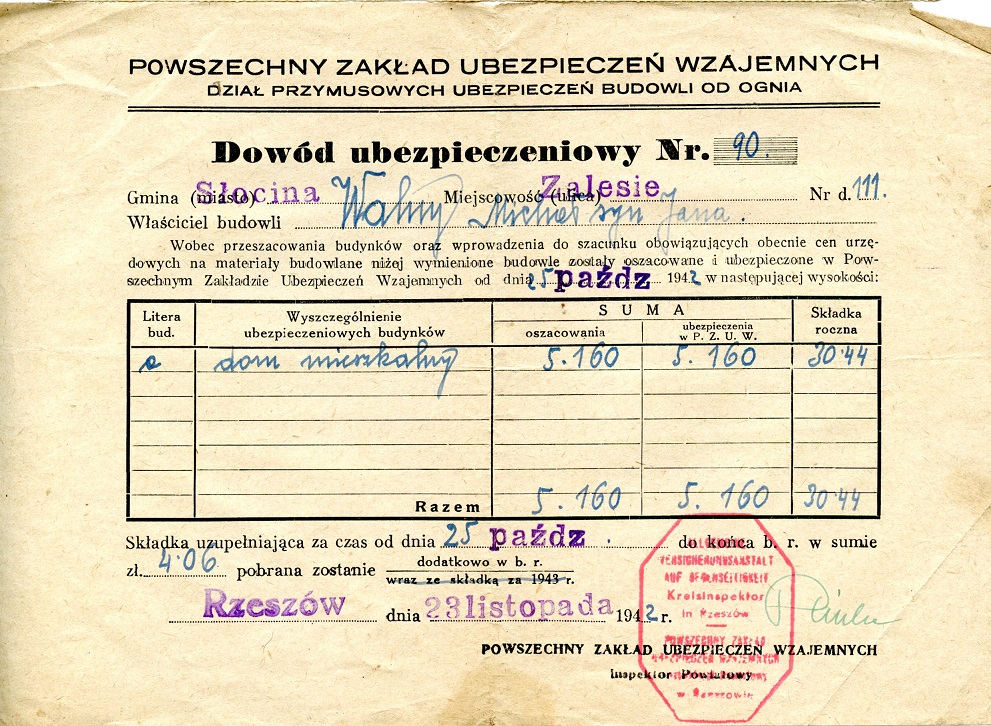 POWSZECHNY ZAKŁAD UBEZPIECZEŃ WZAJEMNYCH
DZIAŁ PRZYMUSOWYCH UBEZPIECZEŃ BUDOWLI OD OGNIA
Dowód ubezpieczeniowy Nr. 90.
Gmina (miasto) Słocina Miejscowość (ulica) Zalesie Nr d. 111.
Właściciel budowli Walny Michał syn Jana.
Wobec przeszacowania budynków oraz wprowadzenia do szacunku obowiązujących obecnie cen urzę-
dowych na materiały budowlane niżej wymienione budowle zostały oszacowane i ubezpieczone w Pow-
szechnym Zakładzie Ubezpieczeń Wzajemnych od dnia 25 paźdz 1942 w następującej wysokości:
Litera bud. Wyszczególnienie ubezpieczeniowych budynków SUMA oszacowania ubezpieczenia w P. Z. U. W. Składka roczna
a dom mieszkalny 5.160 5.160 30·44
Razem 5.160 5.160 30·44
Składka uzupełniająca za czas od dnia 25 paźdz. do końca b. r. w sumie
zł. 4·06 pobrana zostanie dodatkowo w b. r.
wraz ze składką za 1943 r.
Rzeszów dnia 23 listopada 1942 r.
POWSZECHNY ZAKŁAD UBEZPIECZEŃ WZAJEMNYCH
Inspektor Powiatowy
VERSICHERUNGSANSTALT
AUF GEGENSEITIGKEIT
Kreisinspektor
in Rzeszów
POWSZECHNY ZAKŁAD
UBEZPIECZEŃ WZAJEMNYCH
w Rzeszowie